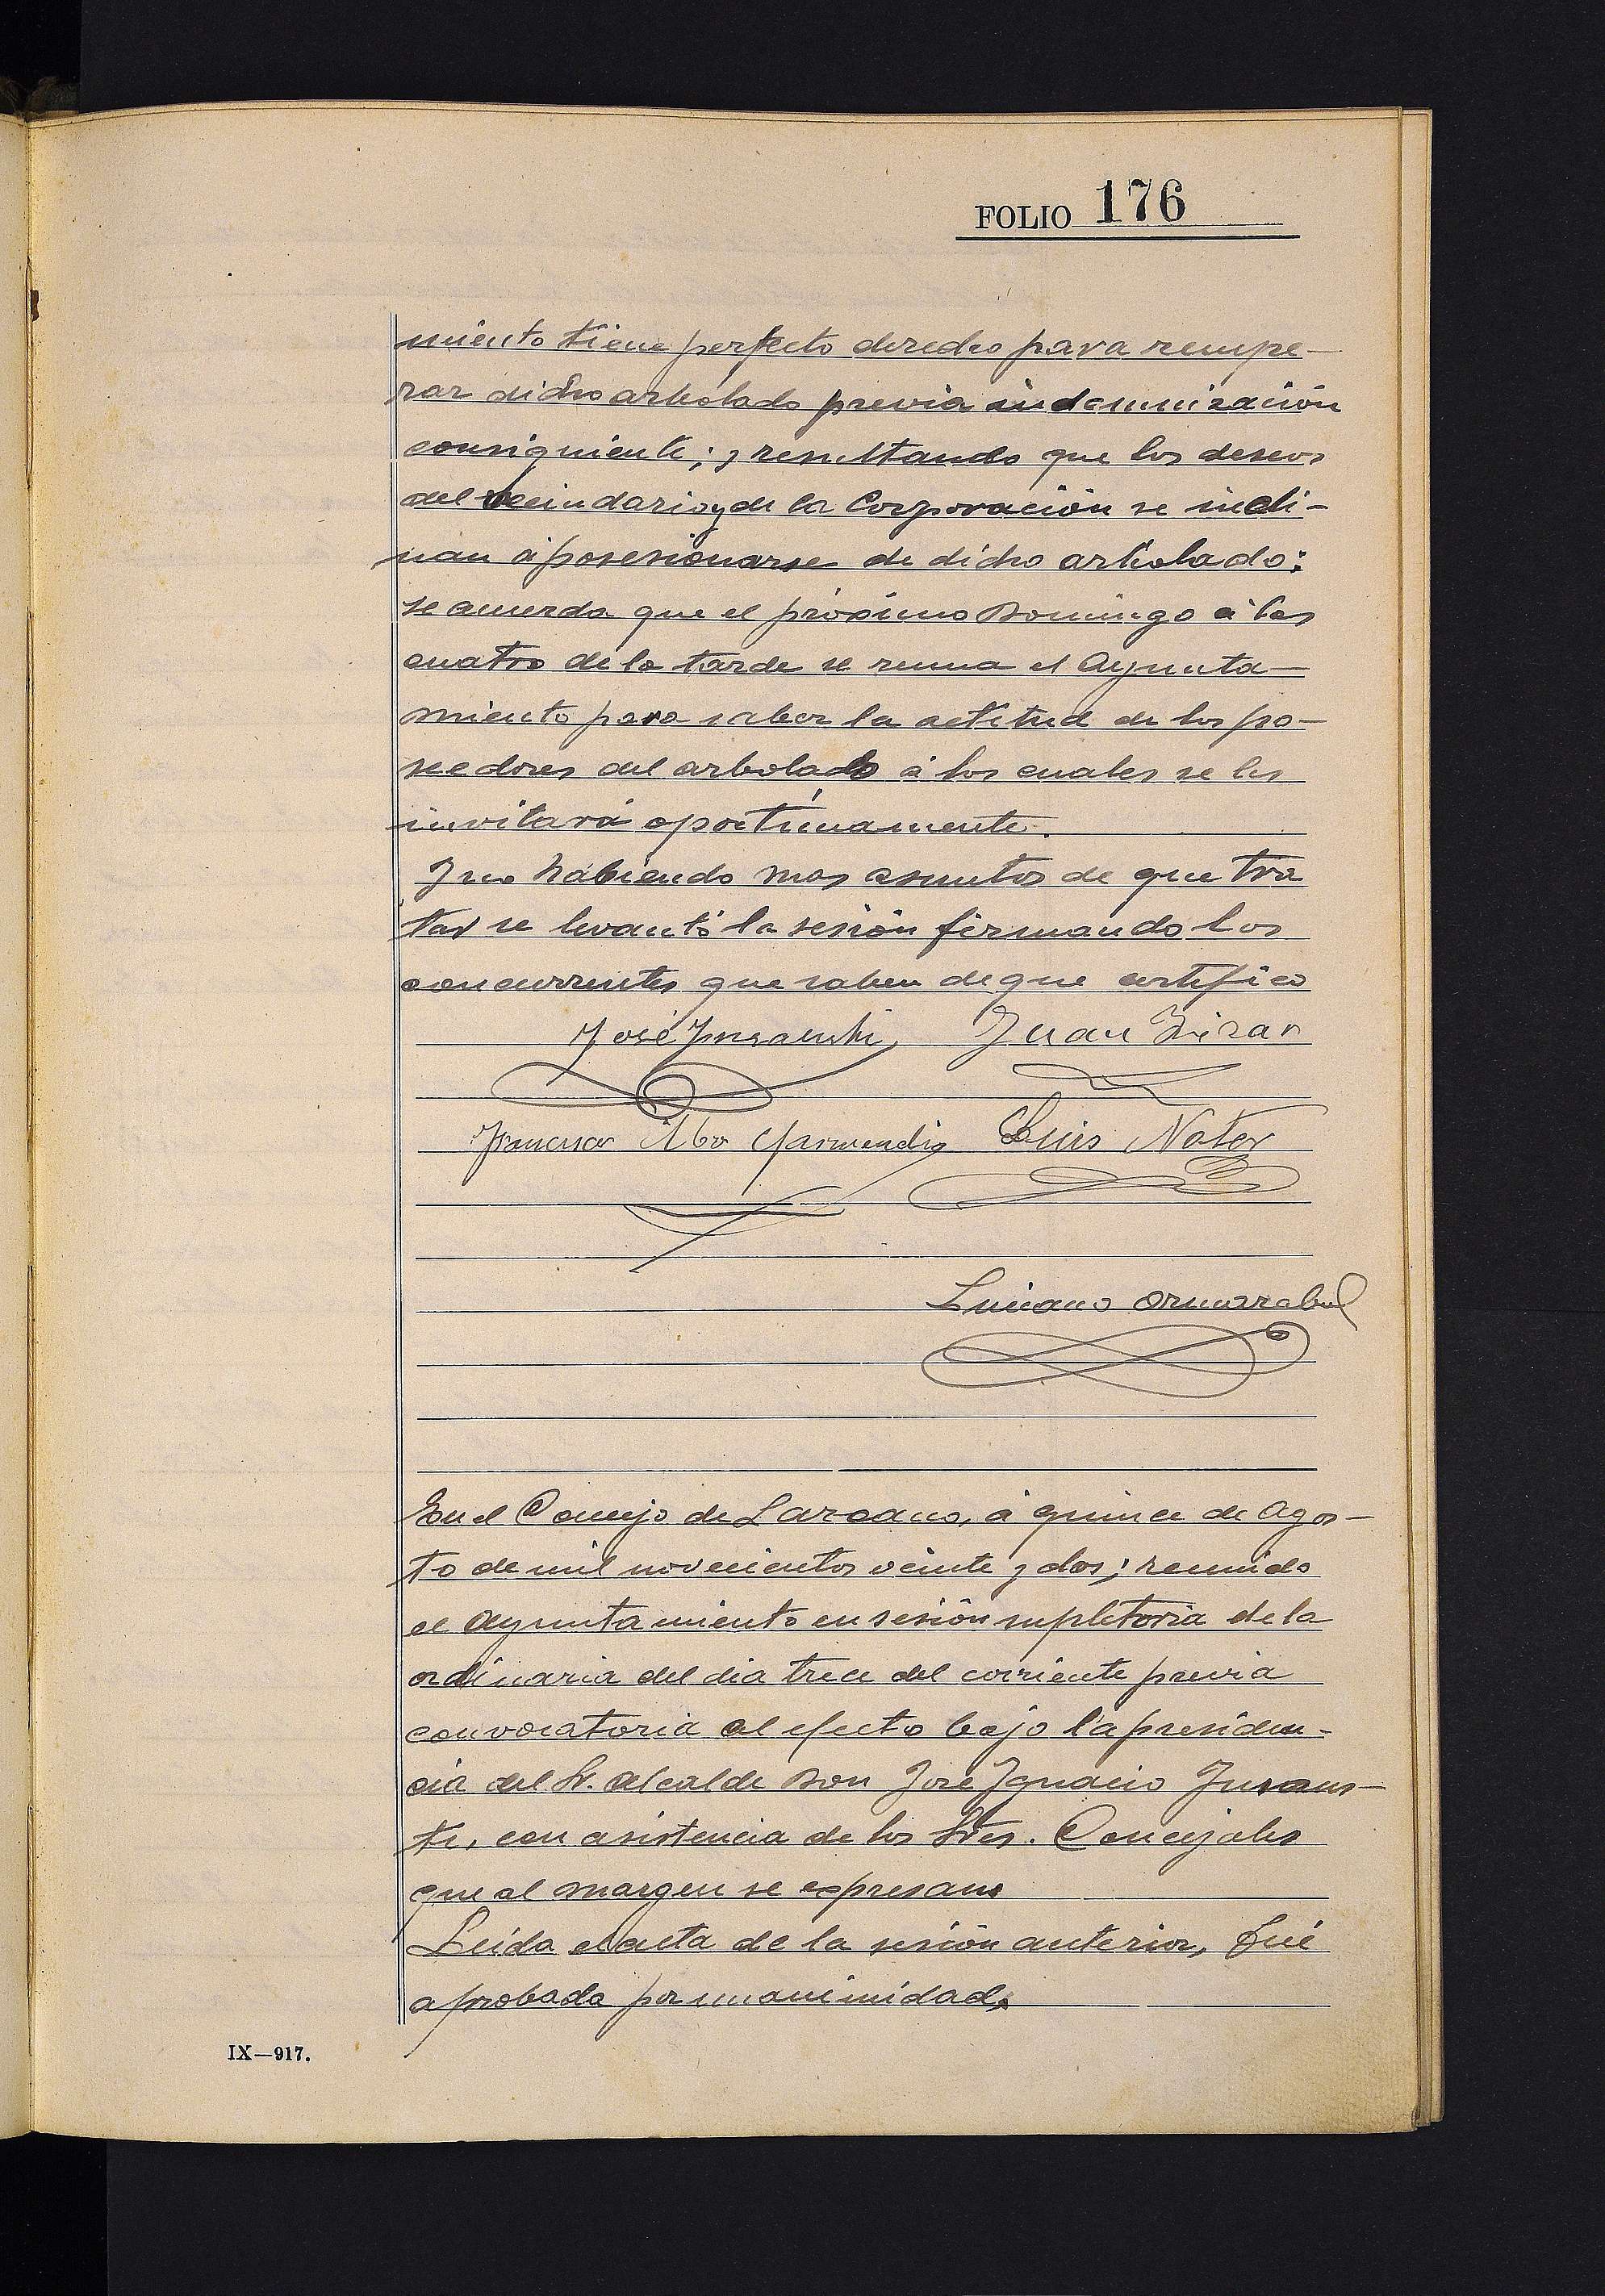 FOLIO 176
miento tiene perfecto derecho para recupe-
rar dicho arbolado previa indemnización
consiguiente; y resultando que los deseos
del vecindario y de la Corporación se incli-
nan á posesionarse de dicho arbolado:
se acuerda que el próximo Domingo á las
cuatro de la tarde se reuna el Ayunta-
miento para saber la actitud de los po-
seedores del arbolado á los cuales se les
invitará oportunamente.
Y no habiendo mas asuntos de que tra
tar se levantó la sesión firmando los
concurrentes que saben de que certifico
José Insausti Juan
Francisco Garmendia Luis Noter
Luciano
En el Concejo de Larcano, á quince de Agos-
to de mil novecientos veinte y dos; reunido
el Ayuntamiento en sesión supletoria de la
ordinaria del dia trece del corriente previa
convocatoria al efecto bajo la presiden-
cia del Sr. Alcalde Don José Ignacio Insaus-
ti, con asistencia de los Sres. Concejales
que al margen se expresan.
Leida el acta de la sesión anterior, fué
aprobada por unanimidad.
IX—917.